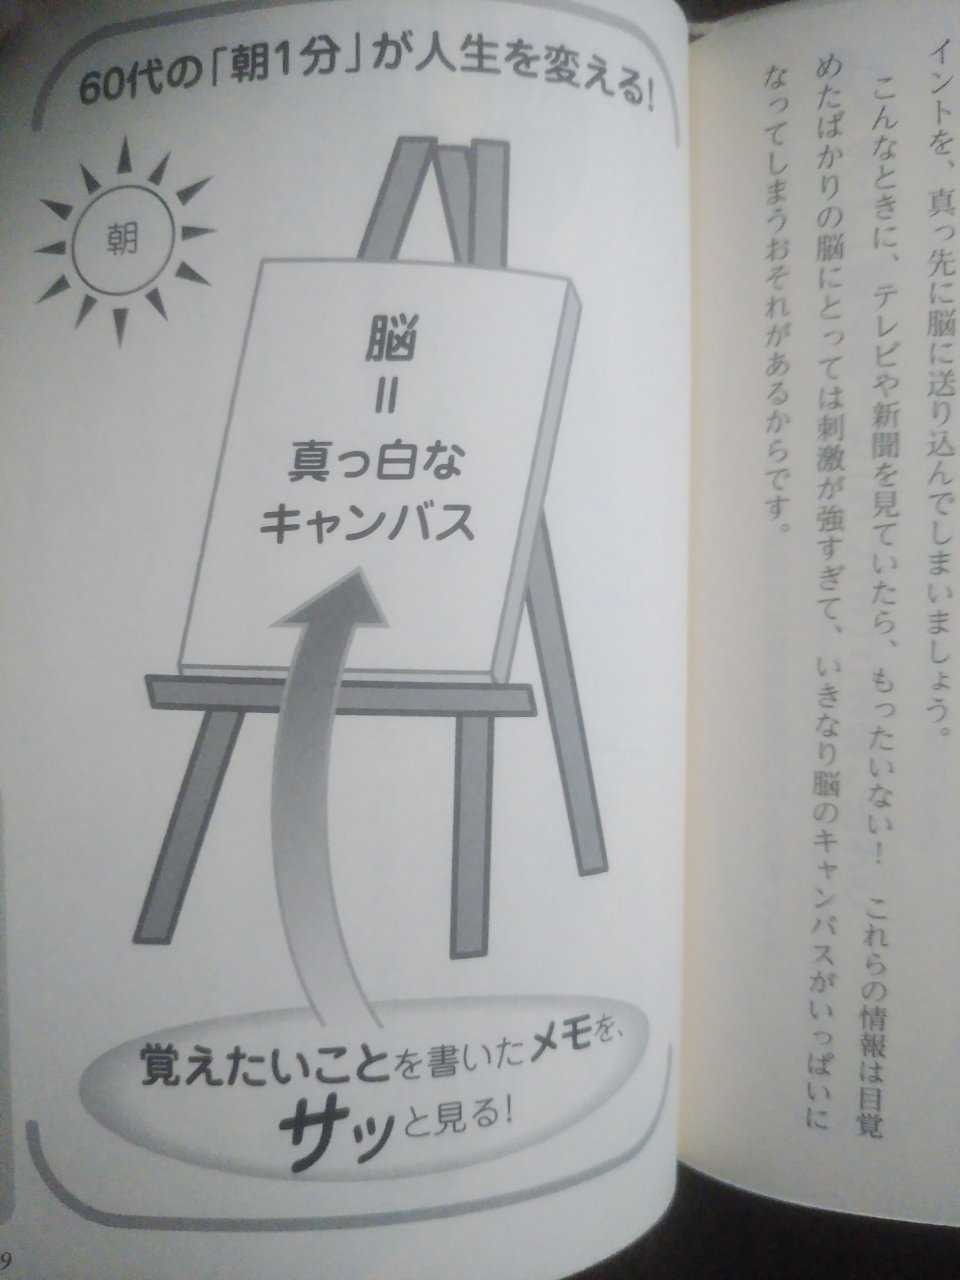 イントを、真っ先に脳に送り込んでしまいましょう。
こんなときに、テレビや新聞を見ていたら、もったいない！　これらの情報は目覚
めたばかりの脳にとっては刺激が強すぎて、いきなり脳のキャンバスがいっぱいに
なってしまうおそれがあるからです。
60代の「朝1分」が人生を変える!
朝
脳
=
真っ白な
キャンバス
覚えたいことを書いたメモを、
サッと見る!
9